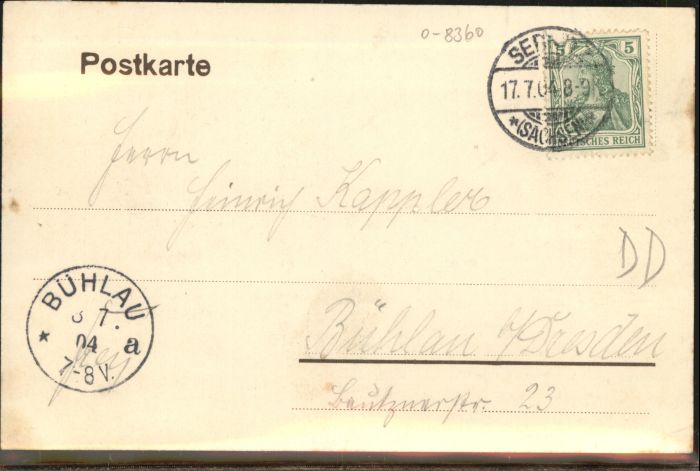 0-8360
Postkarte
SEB
17.7.04 8-9
*(SACHSEN)
5
DEUTSCHES REICH
Herrn
Heinrich Kappler
DD
BÜHLAU
7.
04 a
7-8 V.
Bühlau b/Dresden
Bautznerstr. 23